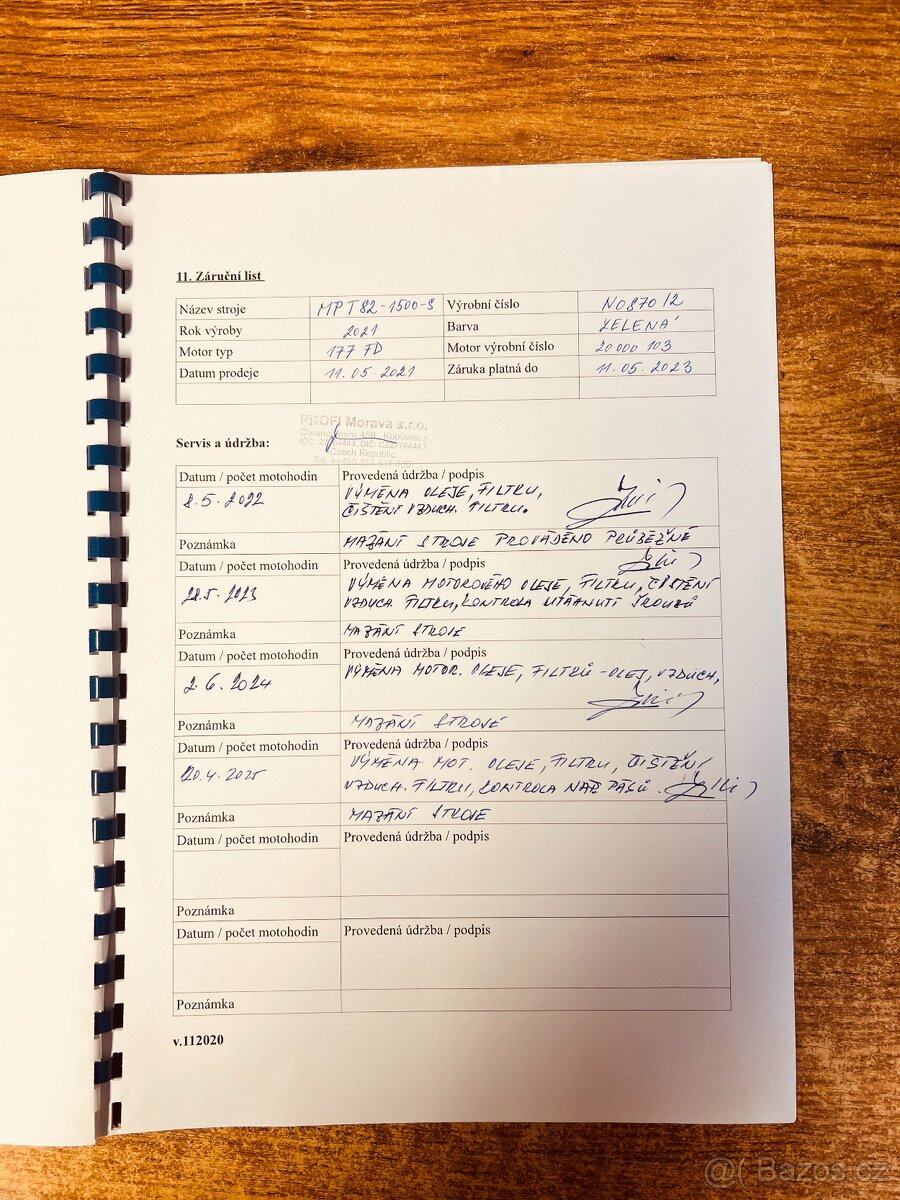 11. Záruční list
Název stroje MPT82-1500-S Výrobní číslo N0870/2
Rok výroby 2021 Barva ZELENÁ
Motor typ 177 FD Motor výrobní číslo 20000103
Datum prodeje 11.05.2021 Záruka platná do 11.05.2023
PROFI Morava s.r.o.
459, Kopřivnice
Czech Republic
Servis a údržba:
Datum / počet motohodin Provedená údržba / podpis
8.5.2022 VÝMĚNA OLEJE, FILTRU,
ČIŠTĚNÍ VZDUCH. FILTRU.
Poznámka MAZÁNÍ STROJE PROVÁDĚNO PRŮBĚŽNĚ
Datum / počet motohodin Provedená údržba / podpis
28.5.2023 VÝMĚNA MOTOROVÉHO OLEJE, FILTRU, ČIŠTĚNÍ
VZDUCH. FILTRU, KONTROLA UTÁHNUTÍ ŠROUBŮ
Poznámka MAZÁNÍ STROJE
Datum / počet motohodin Provedená údržba / podpis
2.6.2024 VÝMĚNA MOTOR. OLEJE, FILTRŮ - OLEJ, VZDUCH,
Poznámka MAZÁNÍ STROJE
Datum / počet motohodin Provedená údržba / podpis
20.4.2025 VÝMĚNA MOT. OLEJE, FILTRU, ČIŠTĚNÍ
VZDUCH. FILTRU, KONTROLA NAP. PÁSŮ.
Poznámka MAZÁNÍ STROJE
Datum / počet motohodin Provedená údržba / podpis
Poznámka
Datum / počet motohodin Provedená údržba / podpis
Poznámka
v.112020
@( Bazos.cz